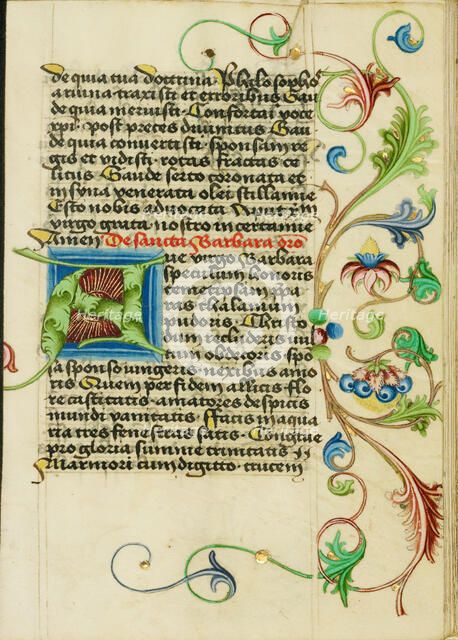 de quia tua doctrina Philosopho
a ruina traxisti et erroribus Gau
de quia meruisti Confortari voce
xpi post preces divinitus Gau
de quia convertisti sponsam re
gis et vidisti rotas fractas ce
litus Gaude serto coronata et
insyna venerata olei stillamie
Esto nobis advocata Aput
virgo grata nostro in certamine
Amen De sancta Barbara oro
ue virgo Barbara
speculum honoris
pudoris Christo
sa sponso iungeris nexibus amo
ris Quem per fidem allicis flo
re castitatis amatores despicis
mundi vanitatis Stulis in aqua
ria tres fenestras satis
pro gloria summe trinitatis In
Marmori cum digitto crucem
Heritage
Heritage
Heritage
Heritage